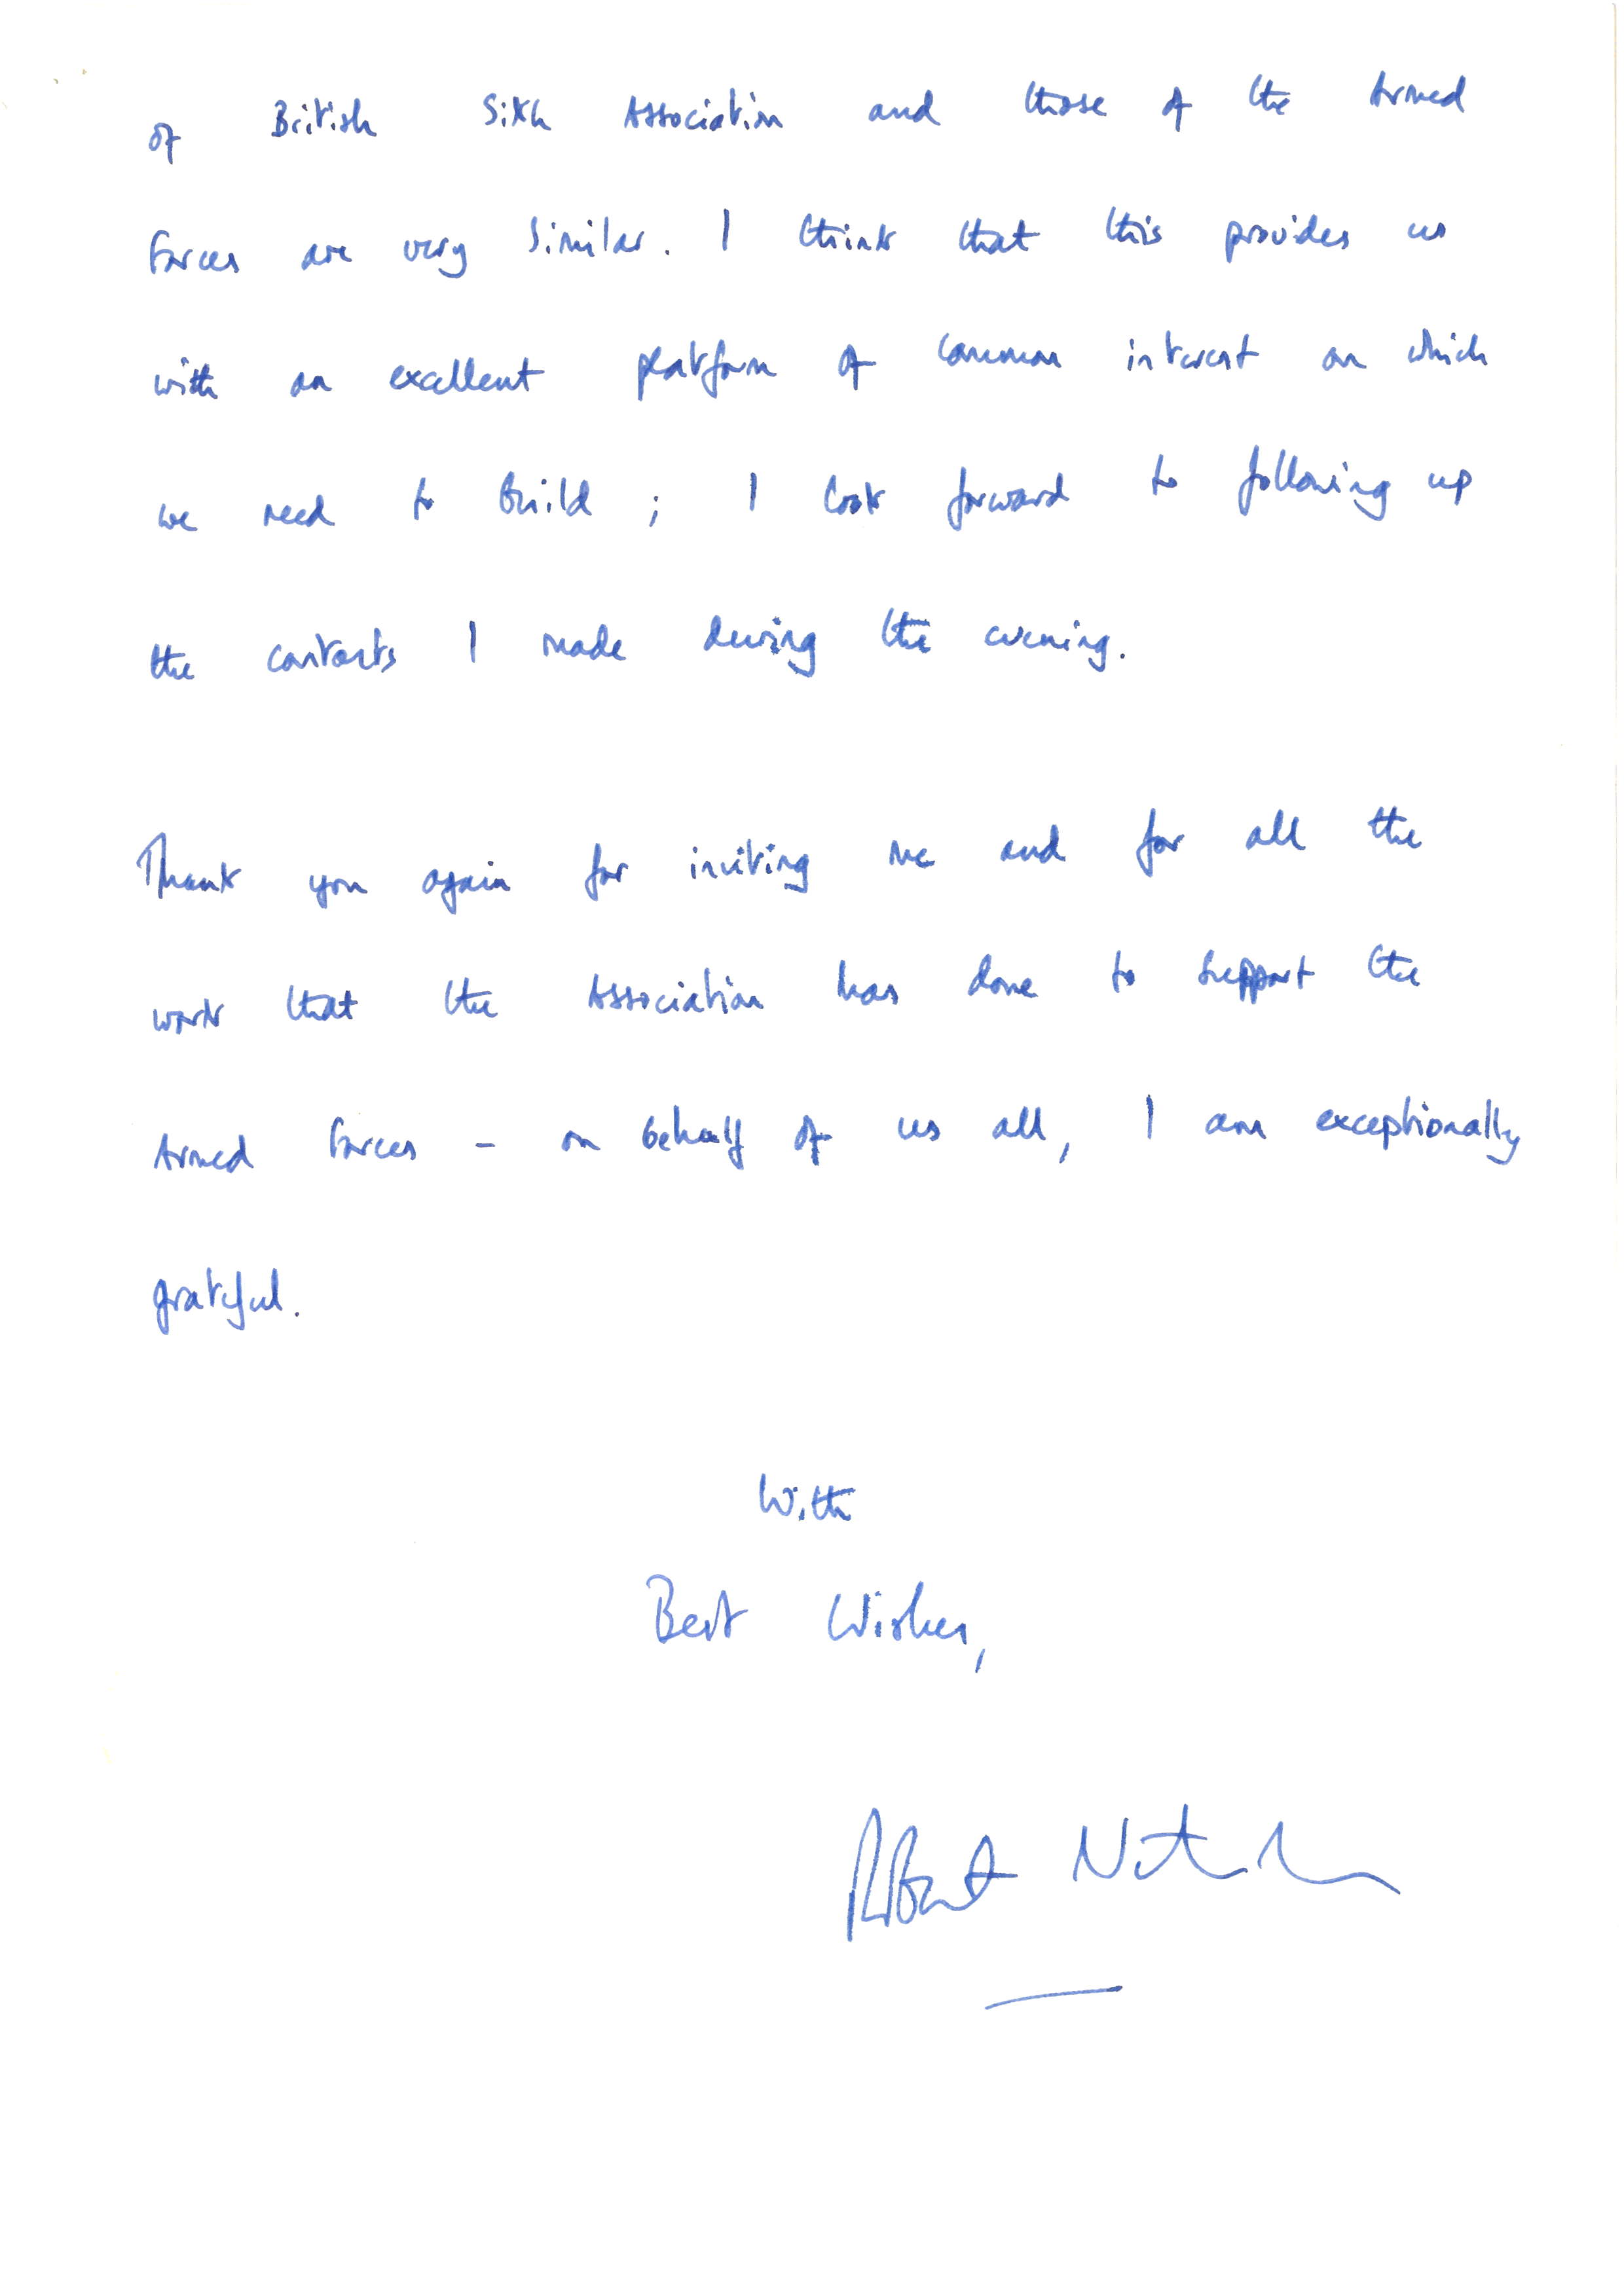 of British Sikh Association and those of the Armed
Forces are very similar. I think that this provides us
with an excellent platform of common interest on which
we need to build ; I look forward to following up
the contacts I made during the evening.
Thank you again for inviting me and for all the
work that the Association has done to support the
Armed Forces – on behalf of us all, I am exceptionally
grateful.
With
Best Wishes,
Robert